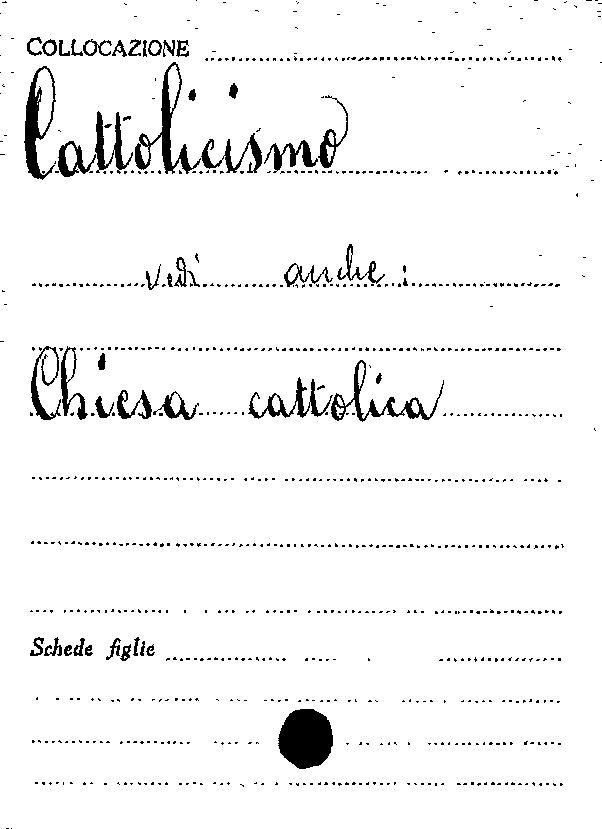 COLLOCAZIONE
Cattolicismo
vedi anche:
Chiesa cattolica
Schede figlie